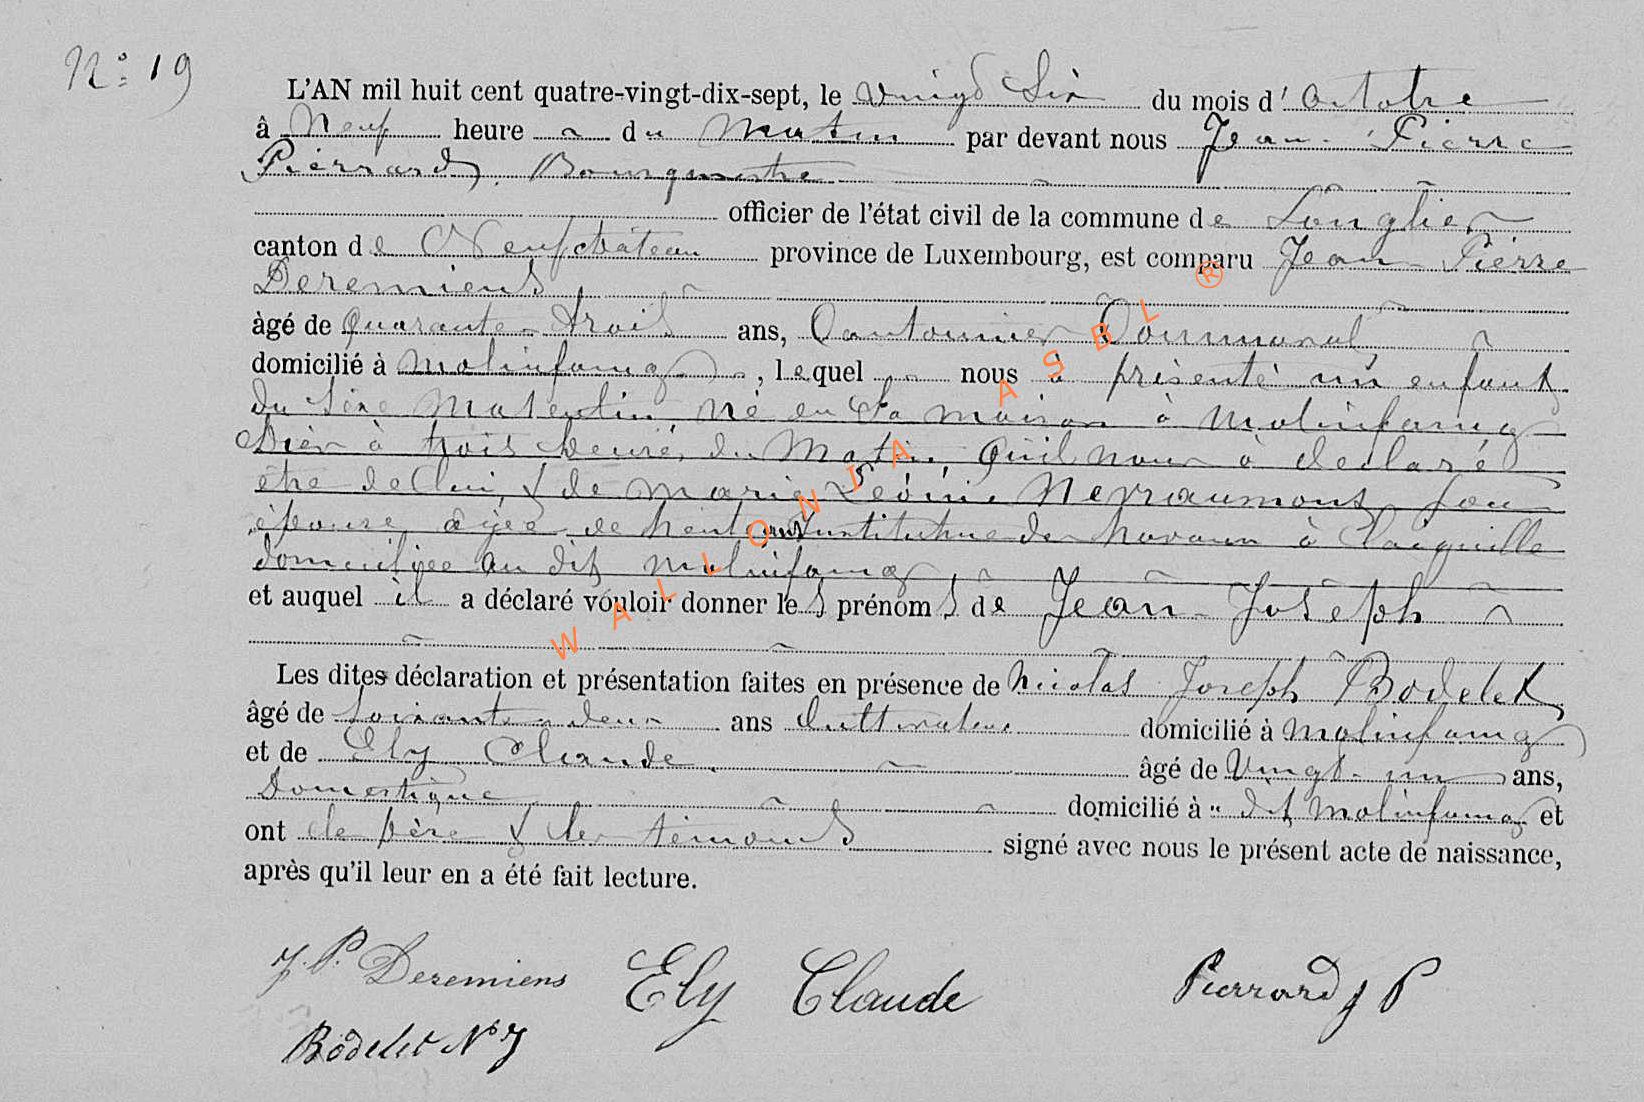 N° 19
L'AN mil huit cent quatre-vingt-dix-sept, le vingt Six du mois d'octobre
à Neuf heure du Matin par devant nous Jean Pierre
Pierrard, Bourgmestre
officier de l'état civil de la commune de Longlier
canton de Neufchâteau province de Luxembourg, est comparu Jean Pierre
Deremiens
âgé de quarante trois ans, Cantonnier Communal
domicilié à Molinfaing, lequel nous a présenté un enfant
du Sexe Masculin né en sa maison à Molinfaing
hier à trois heure du Matin, qu'il nous a déclaré
être de lui, & de Marie Léonie Nevraumont, Son
épouse, âgée de trente
domiciliée au dit Molinfaing,
et auquel il a déclaré vouloir donner les prénoms de Jean Joseph
Les dites déclaration et présentation faites en présence de Nicolas Joseph Bodelet
âgé de soixante deux ans Cultivateur domicilié à Molinfaing
et de Ely Claude âgé de Vingt un ans,
Domestique domicilié à dit Molinfaing et
ont le père & les témoins signé avec nous le présent acte de naissance,
après qu'il leur en a été fait lecture.
J. P. Deremiens Ely Claude Pierrard J P
Bodelet N J
WALLONIA ASBL ®